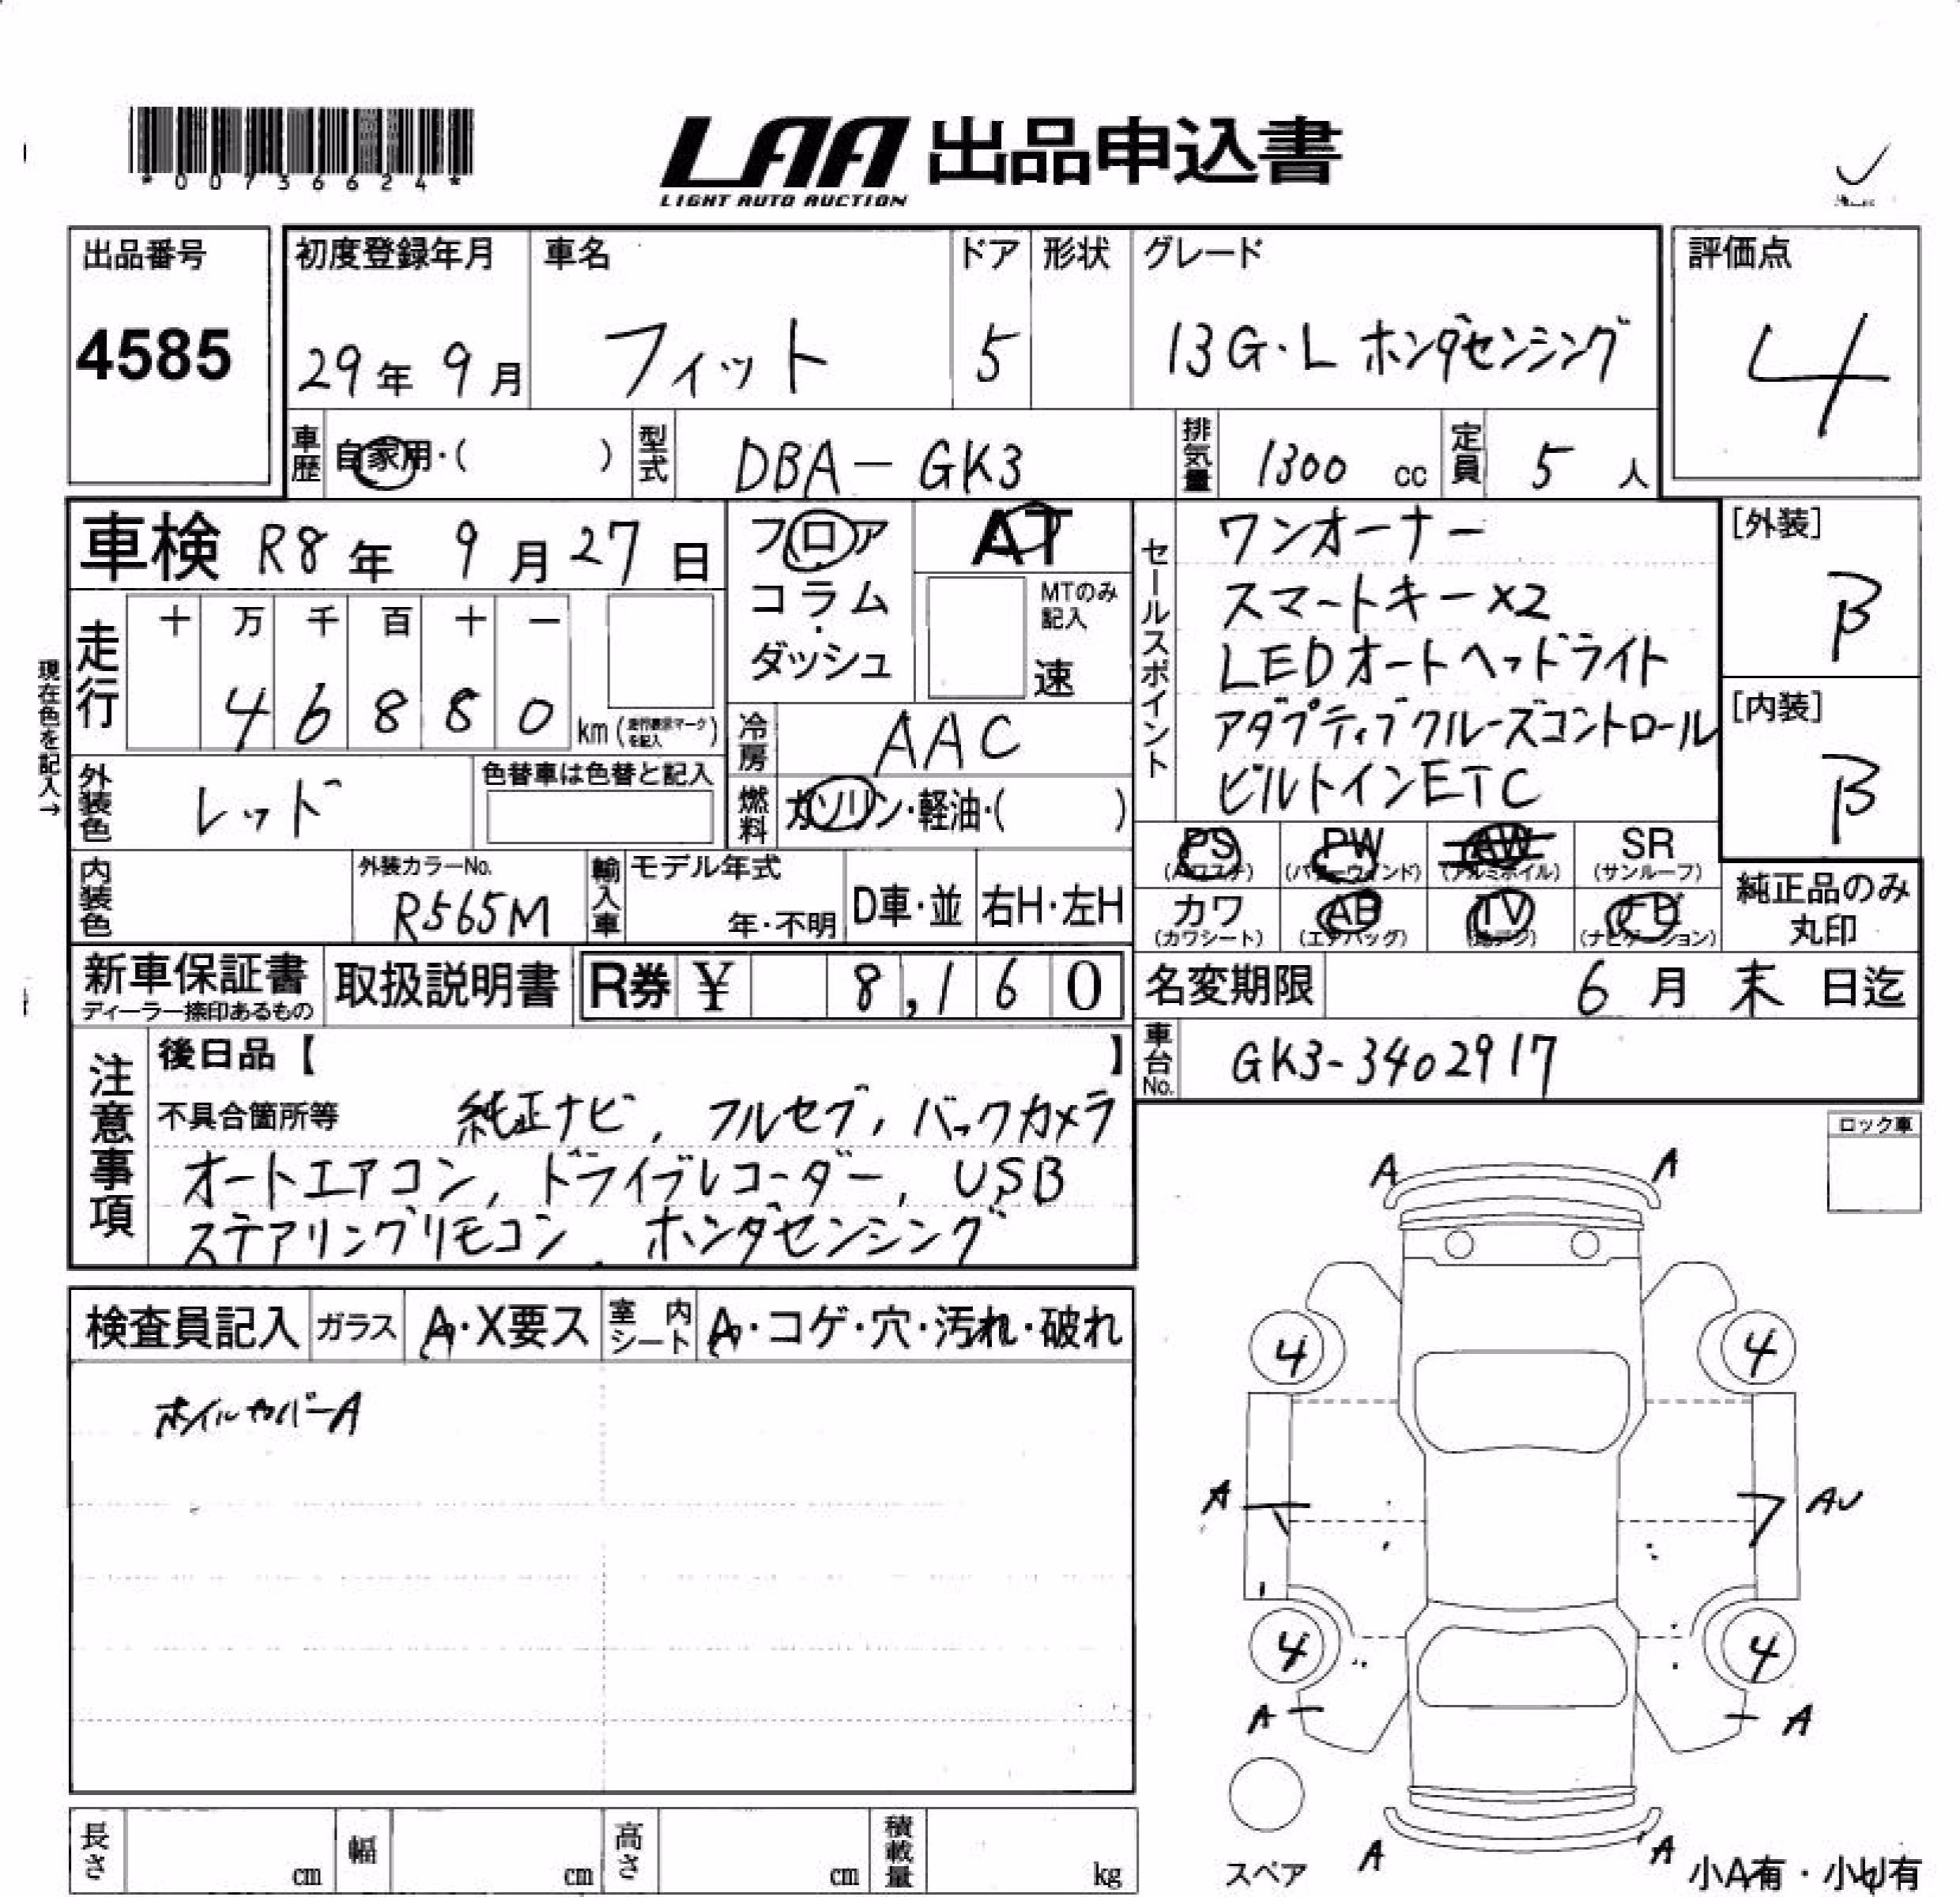 *00736624*
LAA 出品申込書
LIGHT AUTO AUCTION
出品番号
4585
初度登録年月
29年 9月
車名
フィット
ドア
5
形状
グレード
13G・L ホンダセンシング
評価点
4
車歴 自家用・( )
型式 DBA-GK3
排気量 1300 cc
定員 5 人
車検 R8年 9月 27日
フロア
コラム・
ダッシュ
AT
MTのみ
記入
速
セールスポイント
ワンオーナー
スマートキー×2
LEDオートヘッドライト
アダプティブクルーズコントロール
ビルトインETC
[外装]
B
[内装]
B
現在色を記入→
走行 十 万 千 百 十 一
4 6 8 8 0 km
冷房 AAC
外装色 レッド
色替車は色替と記入
燃料 ガソリン・軽油・( )
PS (パワステ)
PW (パワーウィンド)
AW (アルミホイル)
SR (サンルーフ)
カワ (カワシート)
AB (エアバッグ)
TV
ナビ (ナビゲーション)
純正品のみ
丸印
内装色
外装カラーNo.
R565M
輸入車
モデル年式
年・不明
D車・並
右H・左H
新車保証書
ディーラー捺印あるもの
取扱説明書
R券 ¥ 8,160
名変期限 6月 末 日迄
車台No. GK3-3402917
注意事項
後日品【 】
不具合箇所等 純正ナビ, フルセグ, バックカメラ
オートエアコン, ドライブレコーダー, USB
ステアリングリモコン, ホンダセンシング
ロック車
検査員記入 ガラス A・X要ス 室内シート A・コゲ・穴・汚れ・破れ
ホイルカバーA
A A
4 4
A AU
4 4
A A
A A
スペア
小A有・小U有
長さ cm 幅 cm 高さ cm 積載量 kg